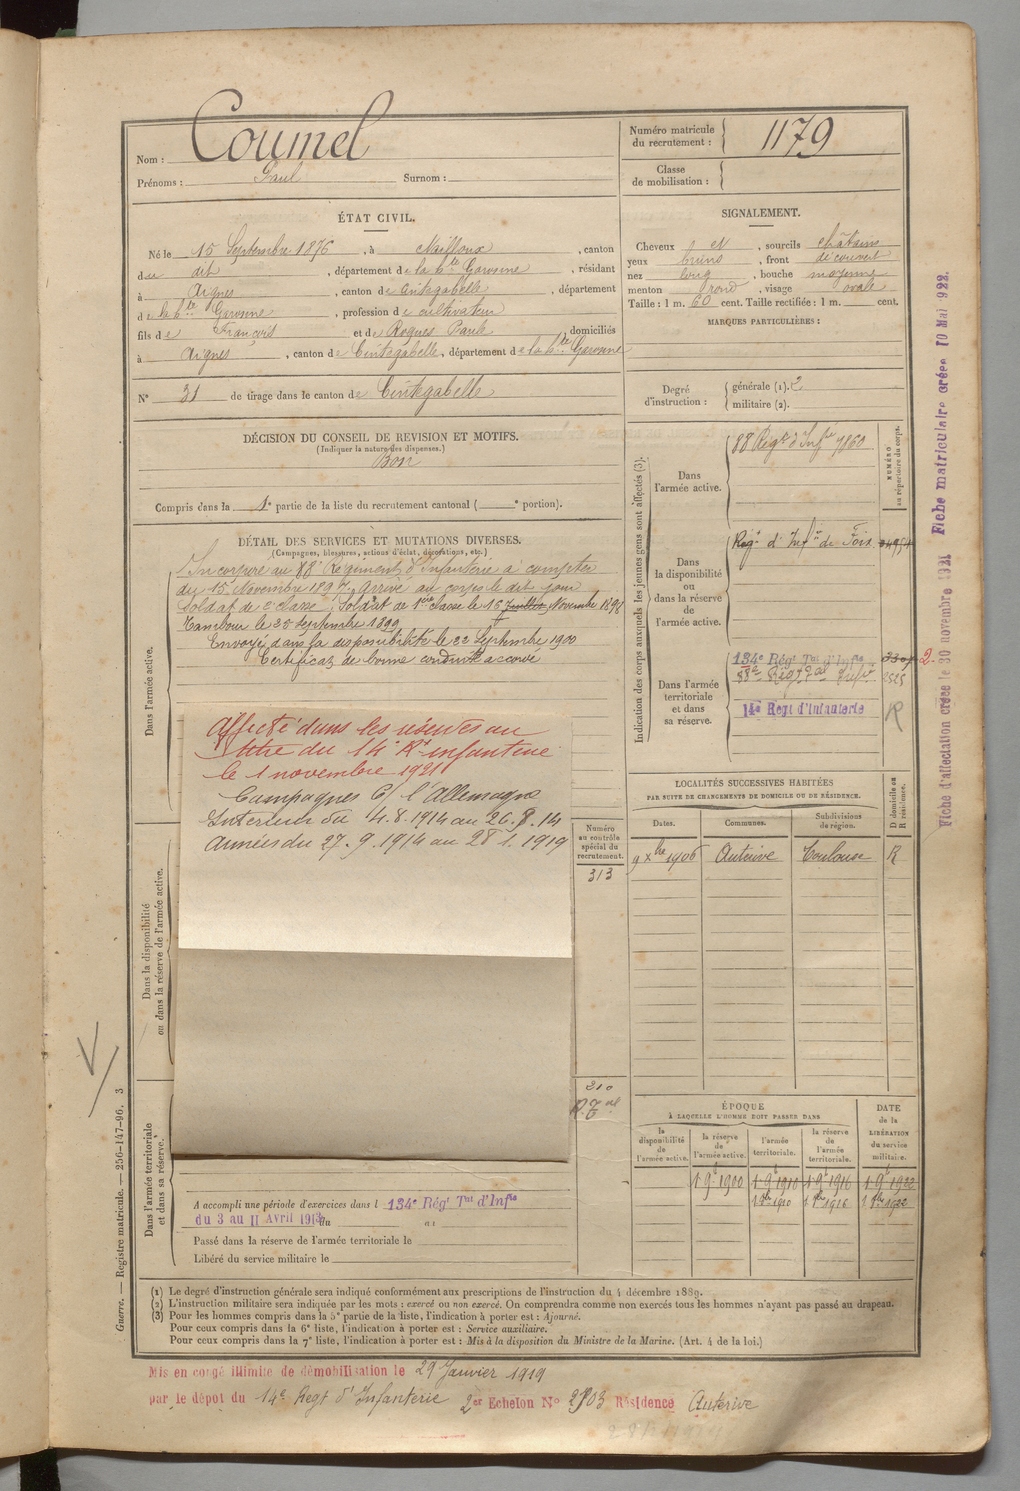 Nom : Coumel
Prénoms : Paul Surnom :
Numéro matricule du recrutement : 1179
Classe de mobilisation :
ÉTAT CIVIL.
Né le 15 Septembre 1876, à Nailloux, canton
du dit, département de la Hte Garonne, résidant
à Aignes, canton de Cintegabelle, département
de la Hte Garonne, profession de cultivateur
fils de François et de Roques Paule, domiciliés
à Aignes, canton de Cintegabelle, département de la Hte Garonne
N° 31 de tirage dans le canton de Cintegabelle
SIGNALEMENT.
Cheveux et, sourcils châtains
yeux bruns, front découvert
nez long, bouche moyenne
menton rond, visage ovale
Taille : 1 m. 60 cent. Taille rectifiée : 1 m. cent.
MARQUES PARTICULIÈRES :
Degré d'instruction : générale (1). 2
militaire (2).
DÉCISION DU CONSEIL DE REVISION ET MOTIFS.
(Indiquer la nature des dispenses.)
Bon
Compris dans la 1e partie de la liste du recrutement cantonal ( e portion).
DÉTAIL DES SERVICES ET MUTATIONS DIVERSES.
(Campagnes, blessures, actions d'éclat, décorations, etc.)
Incorporé au 88e Régiment d'infanterie à compter
du 15 Novembre 1897, Arrivé au corps le dit jour
Soldat de 2e classe. Soldat de 1ere classe le 16 Juillet Novembre 1898
Tambour le 25 Septembre 1899
Envoyé dans la disponibilité le 22 Septembre 1900
Certificat de bonne conduite accordé
Dans l'armée active.
Affecté dans les réserves au
titre du 14e Rt infanterie
le 1 novembre 1921
Campagnes C/ l'Allemagne
Intérieur du 4.8.1914 au 26.8.14
Armées du 27.9.1914 au 28 1.1919
Dans la disponibilité ou dans la réserve de l'armée active.
Numéro au contrôle spécial du recrutement.
313
310
R.Tal
Dans l'armée territoriale et dans sa réserve.
A accompli une période d'exercices dans l 134e Régt Tal d'Infie
du 3 au 11 Avril 191 au
Passé dans la réserve de l'armée territoriale le
Libéré du service militaire le
Indication des corps auxquels les jeunes gens sont affectés (3).
NUMÉRO au répertoire du corps.
Dans l'armée active.
88 Régt d'Infie 7860
Dans la disponibilité ou dans la réserve de l'armée active.
Régt d'Infie de Foix
Dans l'armée territoriale et dans sa réserve.
134e Régt Tal d'Infie
2525
14e Regt d'Infanterie R
2.
LOCALITÉS SUCCESSIVES HABITÉES
PAR SUITE DE CHANGEMENTS DE DOMICILE OU DE RÉSIDENCE.
Dates. Communes. Subdivisions de région. D domicile ou R résidence.
9 Xbre 1906 Auterive Toulouse R
ÉPOQUE
À LAQUELLE L'HOMME DOIT PASSER DANS
la disponibilité de l'armée active. la réserve de l'armée active. l'armée territoriale. la réserve de l'armée territoriale. DATE de la LIBÉRATION du service militaire.
1 9bre 1900 1 9bre 1910 1 9bre 1916 1 9bre 1922
(1) Le degré d'instruction générale sera indiqué conformément aux prescriptions de l'instruction du 4 décembre 1889.
(2) L'instruction militaire sera indiquée par les mots : exercé ou non exercé. On comprendra comme non exercés tous les hommes n'ayant pas passé au drapeau.
(3) Pour les hommes compris dans la 5e partie de la liste, l'indication à porter est : Ajourné.
Pour ceux compris dans la 6e liste, l'indication à porter est : Service auxiliaire.
Pour ceux compris dans la 7e liste, l'indication à porter est : Mis à la disposition du Ministre de la Marine. (Art. 4 de la loi.)
Mis en congé illimité de démobilisation le 29 Janvier 1919
par le dépot du 14e Regt d'Infanterie 2er Echelon No 2703 Résidence Auterive
Guerre. — Registre matricule. — 256-147-96. 3
Fiche d'affectation créée le 30 novembre 1921 Fiche matriculaire créée 10 Mai 922.